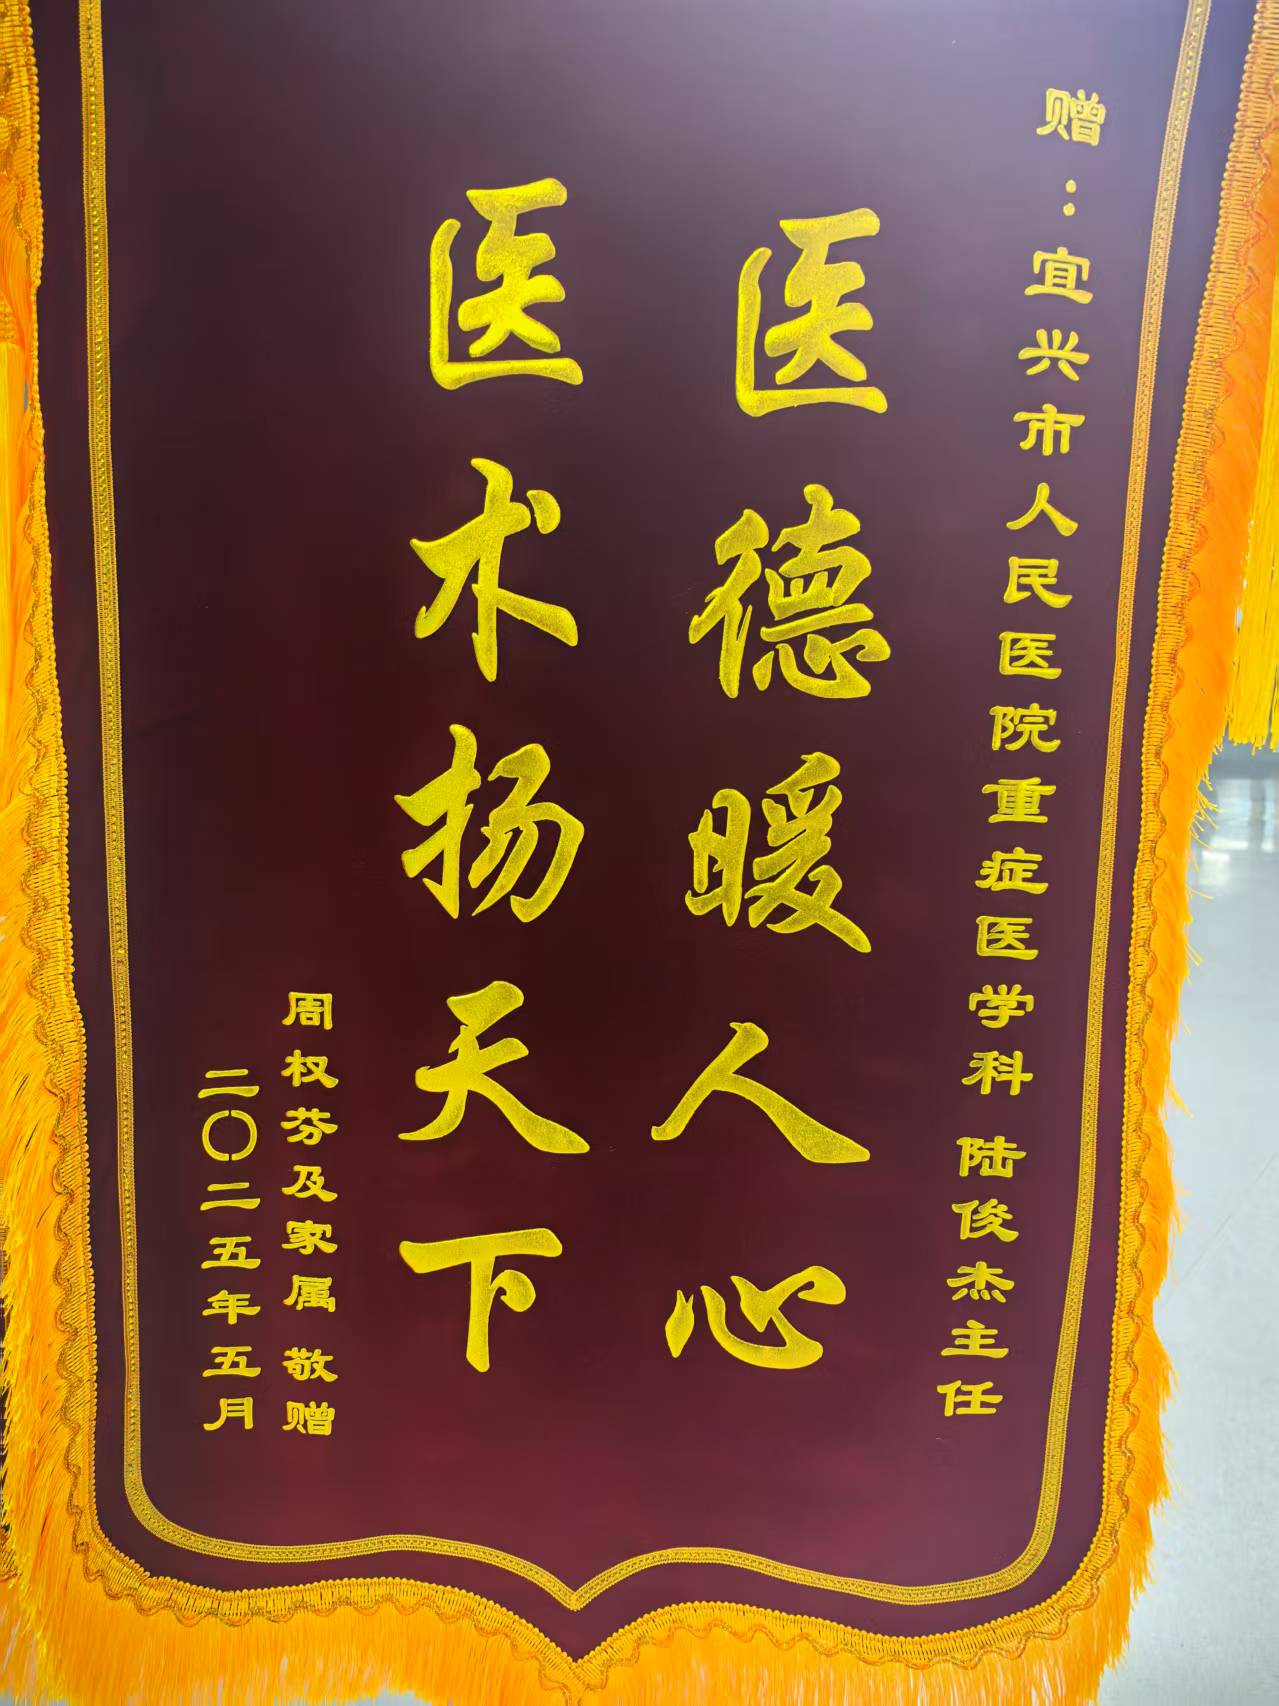 赠：宜兴市人民医院重症医学科 陆俊杰主任
医德暖人心
医术扬天下
周权芬及家属 敬赠
二〇二五年五月